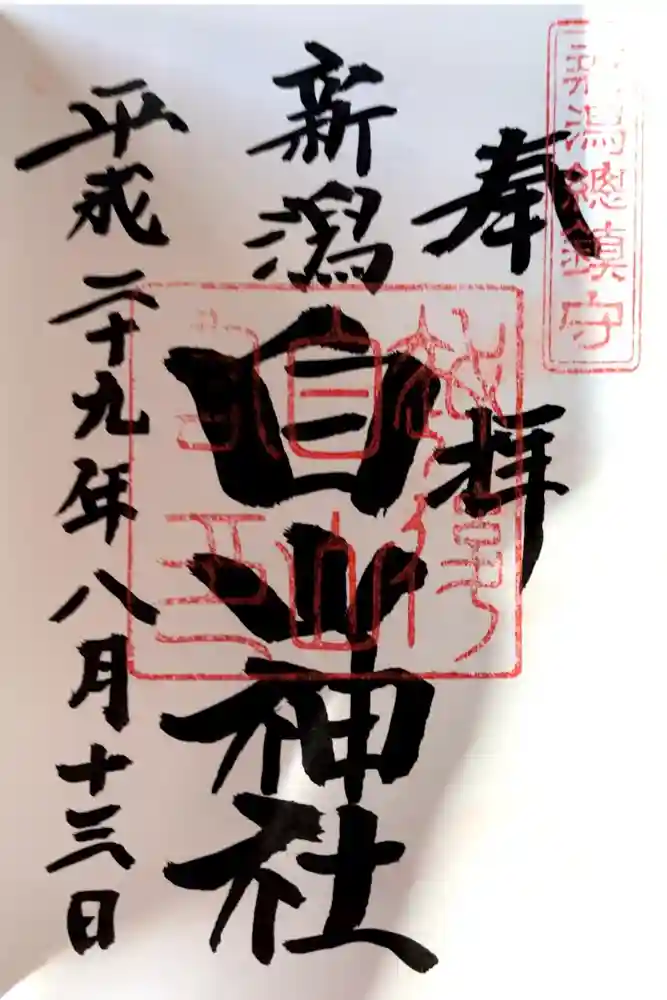 新潟總鎮守
奉拝
新潟白山神社
平成二十九年八月十三日